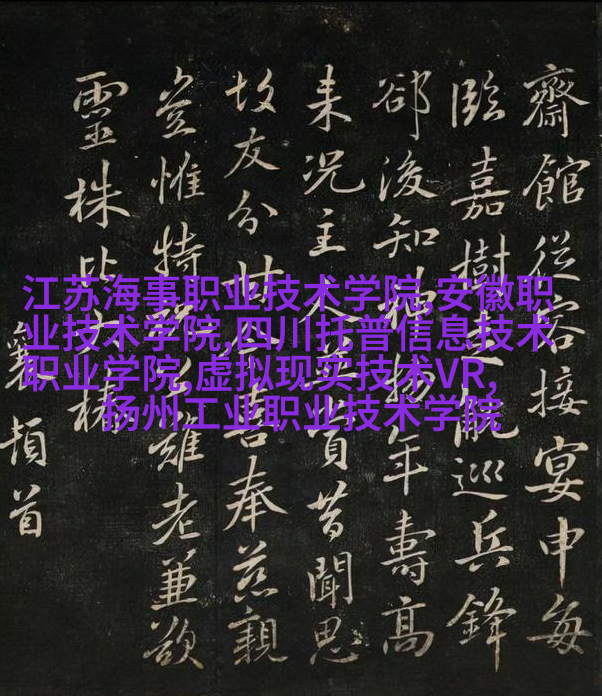 江苏海事职业技术学院,安徽职
业技术学院,四川托普信息技术
职业学院,虚拟现实技术VR,
扬州工业职业技术学院
齋館從容接宴申每
臨嘉樹脫巡兵鋒
郤後知神揚年壽高
来况主人昔聞思
故友分甘喜奉慈親
豈惟特雖老兼欲
靈株比大椿
襄頓首